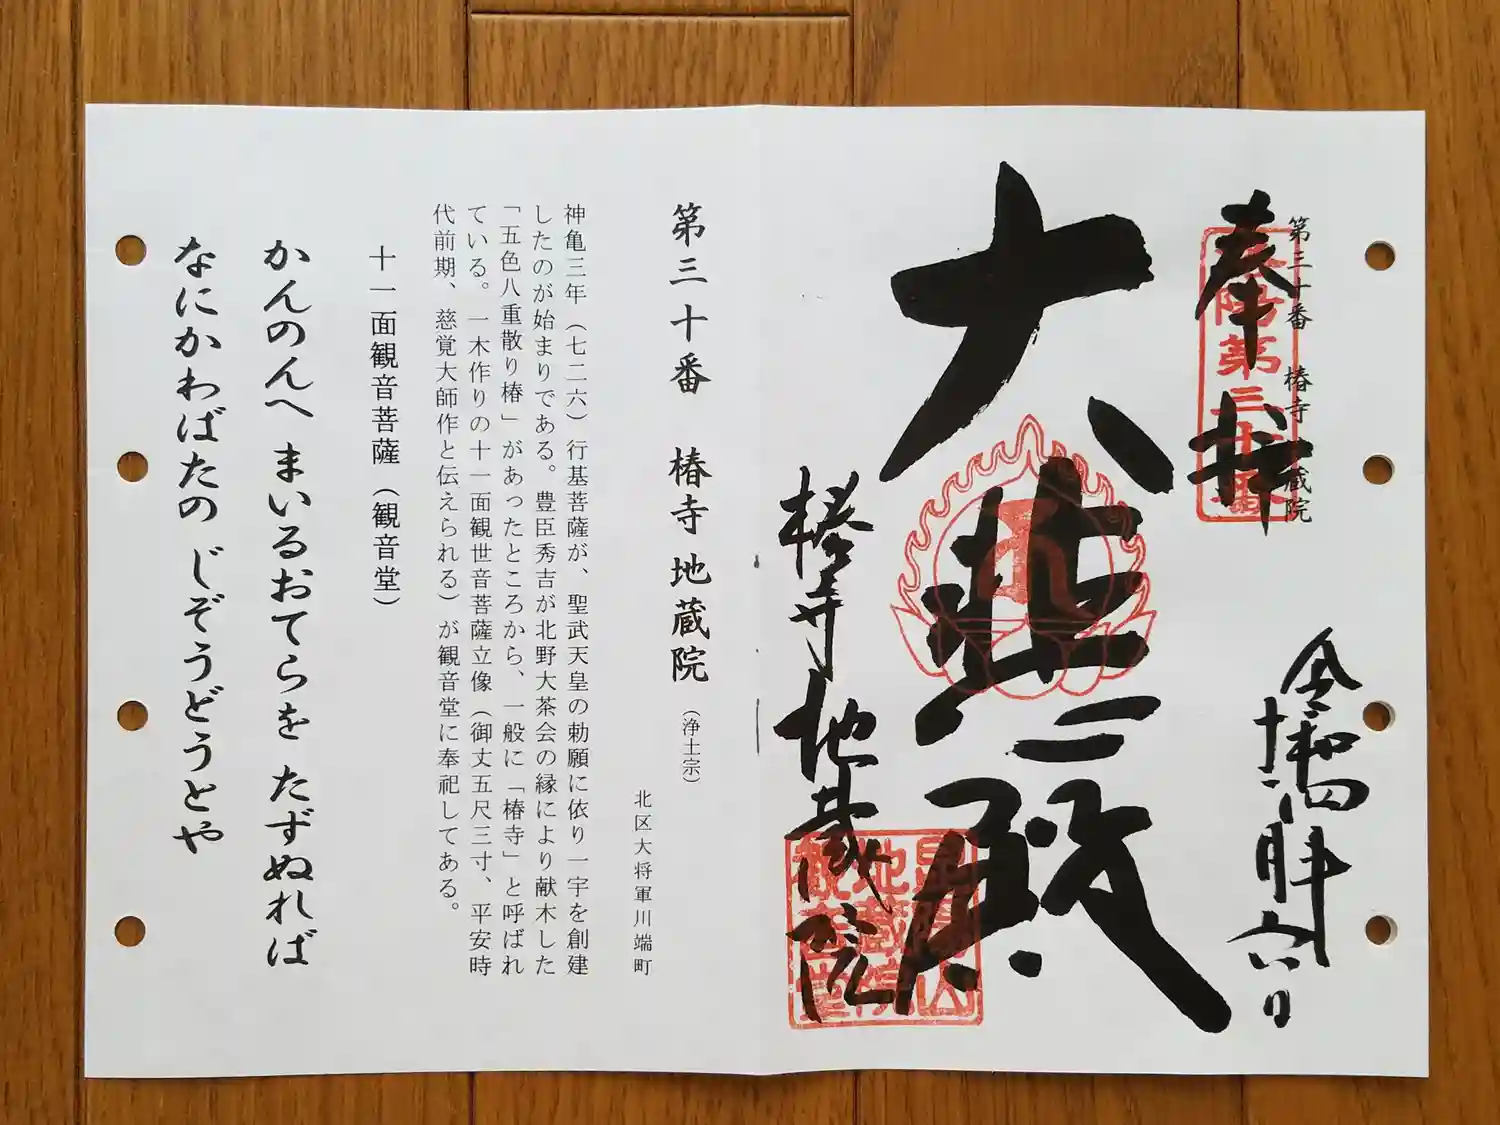 奉拝
第三十番 椿寺 蔵院
大悲殿
椿寺地蔵院
第三十番 椿寺地蔵院(浄土宗)
北区大将軍川端町
神亀三年(七二六)行基菩薩が、聖武天皇の勅願に依り一宇を創建
したのが始まりである。豊臣秀吉が北野大茶会の縁により献木した
「五色八重散り椿」があったところから、一般に「椿寺」と呼ばれ
ている。一木作りの十一面観世音菩薩立像(御丈五尺三寸、平安時
代前期、慈覚大師作と伝えられる)が観音堂に奉祀してある。
十一面観音菩薩(観音堂)
かんのんへ まいるおてらを たずぬれば
なにかわばたの じぞうどうとや